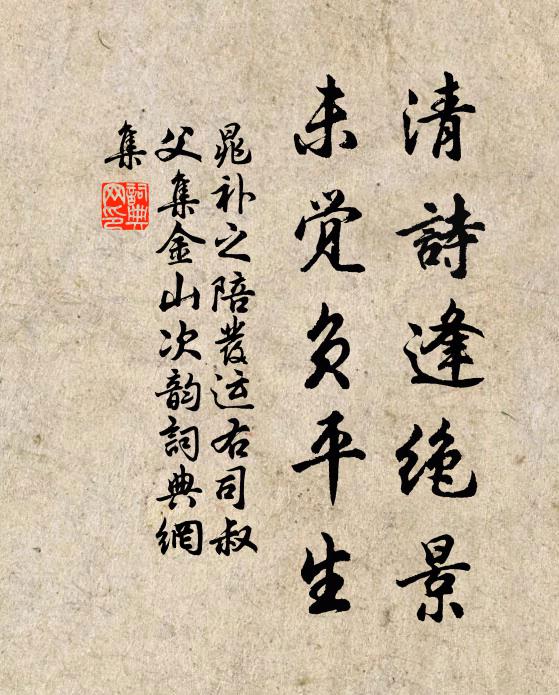 清詩逢絶景
未觉負平生
晁补之陪發运右司叔
父集金山次韵詞典網
集
詞典
网印